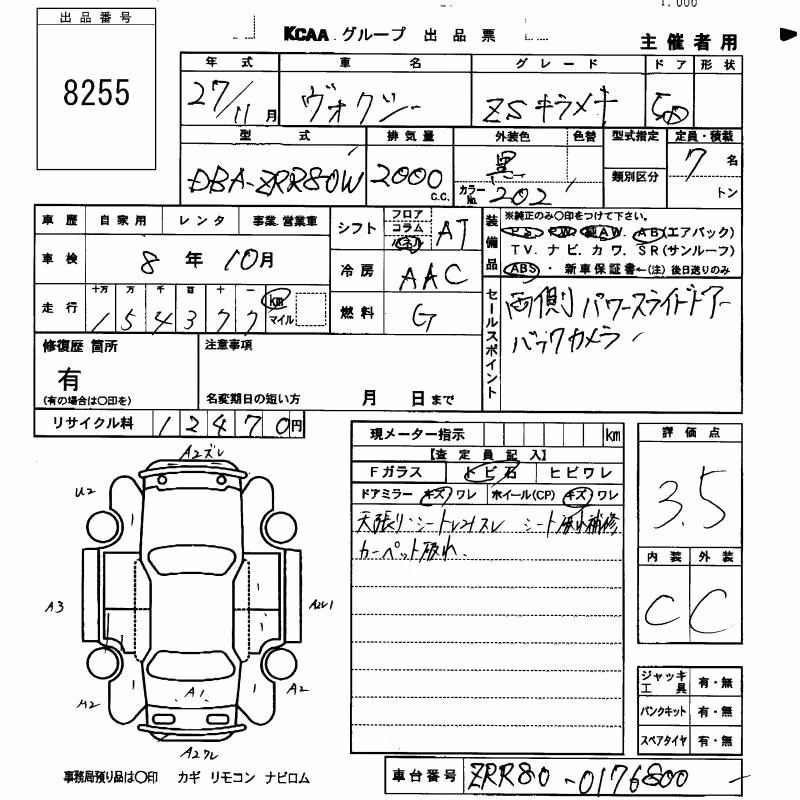 1.000
出品番号
8255
KCAA グループ 出品票
主催者用
年式 車名 グレード ドア 形状
27/11月 ヴォクシー ZSキラメキ 5D
型式 排気量 外装色 色替 型式指定 定員・積載
類別区分
DBA-ZRR80W 2000c.c. 黒 カラーNo. 202 7名
トン
車歴 自家用 レンタ 事業.営業車
車検 8年10月
走行 十万 万 千 百 十 一
154377 km マイル
シフト フロア コラム パネル AT
冷房 AAC
燃料 G
装備品 ※純正のみ〇印をつけて下さい。
PS. PW. 純AW. AB(エアバック)
TV. ナビ. カワ. SR(サンルーフ)
ABS ・ 新車保証書←(注)後日送りのみ
セールスポイント
両側パワースライドドアー
バックカメラ
修復歴 箇所 注意事項
有
(有の場合は〇印を) 名変期日の短い方 月 日まで
リサイクル料 12470円
現メーター指示 km
【査定員記入】
Fガラス トビ石 ヒビワレ
ドアミラー キズ ワレ ホイール(CP) キズ ワレ
天張り・シート
シート 補修
カーペット
評価点
3.5
内装 外装
C C
A2ズレ
U2
A3
A2
A1
A2
ジャッキ工具 有・無
パンクキット 有・無
スペアタイヤ 有・無
事務局預り品は〇印 カギ リモコン ナビロム
車台番号 ZRR80-0176800